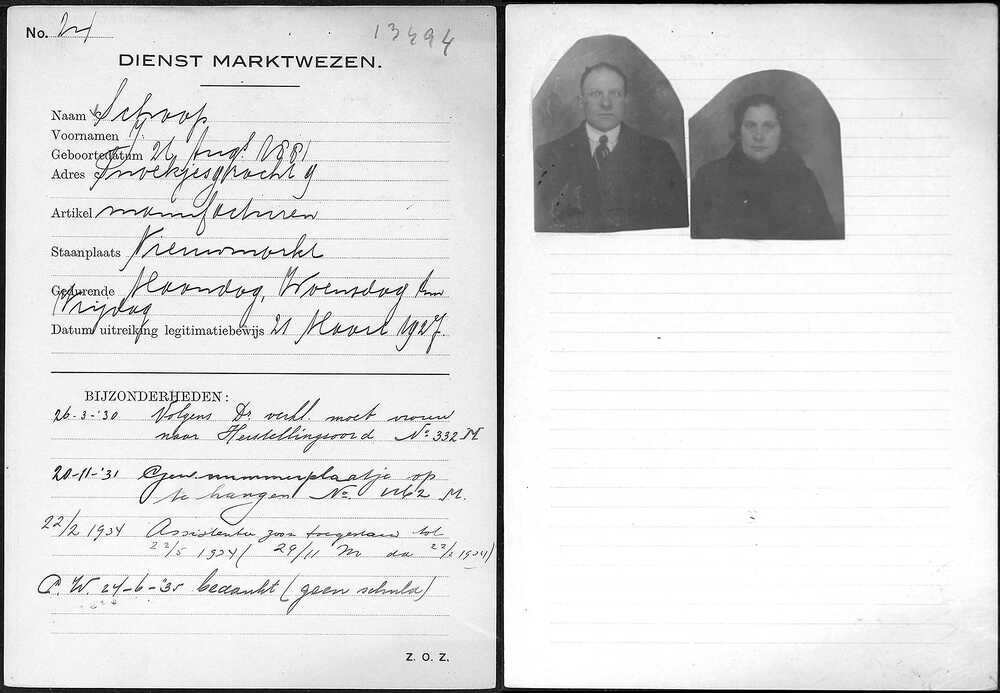 No. 24
13494
DIENST MARKTWEZEN.
Naam Schaap
Voornamen
Geboortedatum 26 Augs. 1881
Adres Snoekjesgracht 9
Artikel manufacturen
Staanplaats Nieuwmarkt
Gedurende Maandag, Woensdag en
Vrijdag
Datum uitreiking legitimatiebewijs 21 Maart 1927.
BIJZONDERHEDEN:
26-3-'30 Volgens Dr. verkl. moet vrouw
naar Herstellingsoord No 332 M
20-11-'31 Gew. nummerplaatje op
te hangen No. 1162 M.
22/2 1934 Assistentie zoon toegestaan tot
22/5 1934 ( 29/11 M dd 22/2 1934)
C. W. 24-6-'35 bedankt (geen schuld)
Z. O. Z.